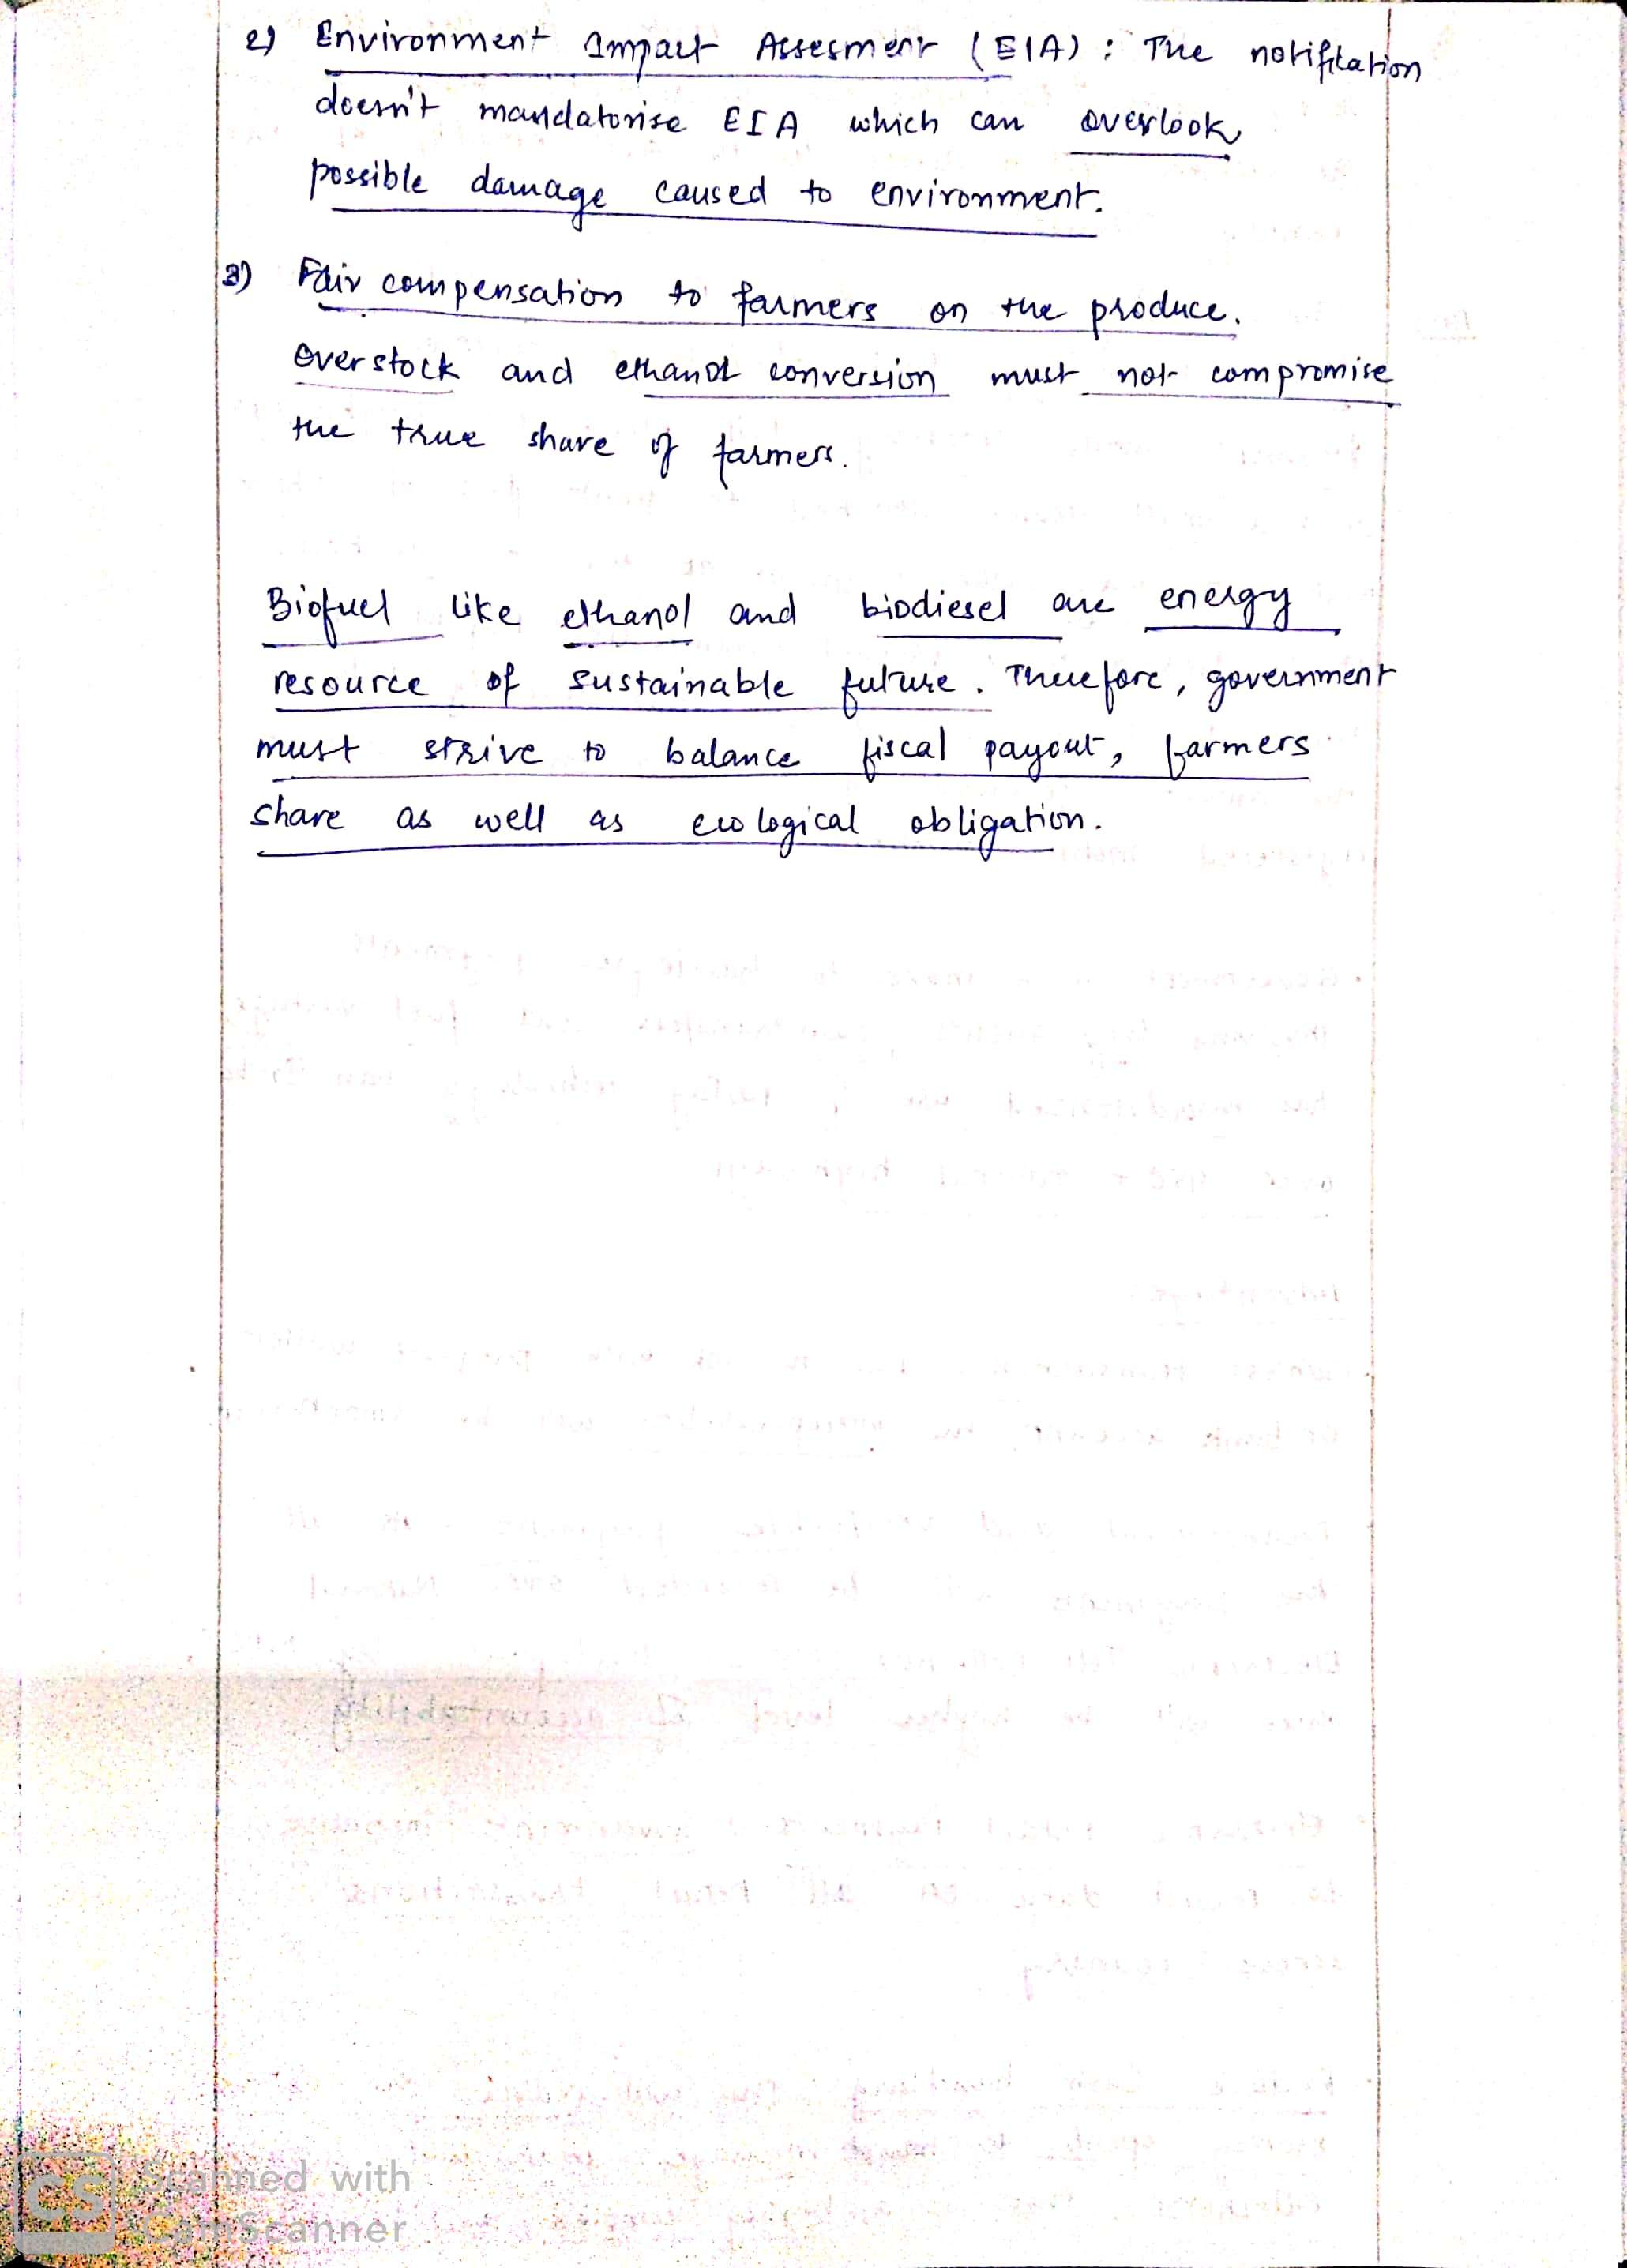 2) Environment Impact Assesment (EIA) : The notification
doesn't mandatorise EIA which can overlook
possible damage caused to environment.
3) Fair compensation to farmers on the produce.
Overstock and ethanol conversion must not compromise
the true share of farmers.
Biofuel like ethanol and biodiesel are energy
resource of sustainable future. Therefore, government
must strive to balance fiscal payout, farmers
share as well as ecological obligation.
CS Scanned with
CamScanner